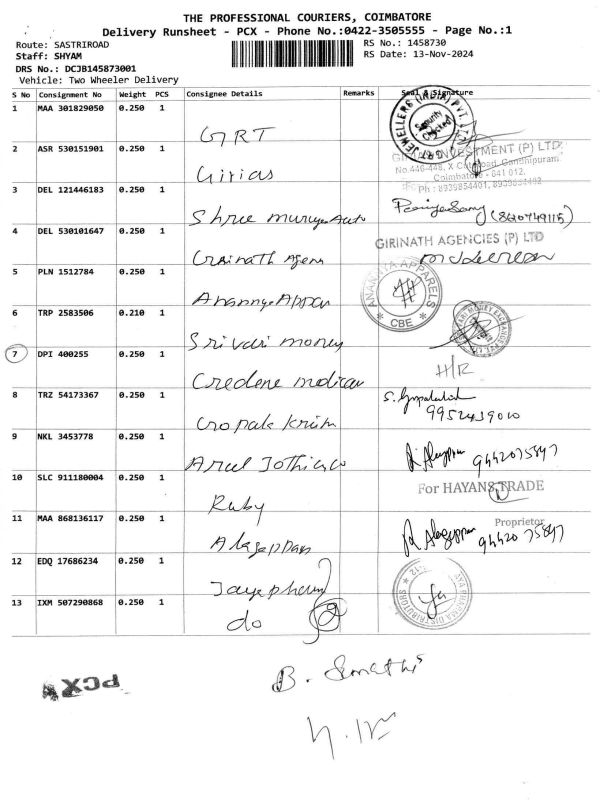 THE PROFESSIONAL COURIERS, COIMBATORE
Delivery Runsheet - PCX - Phone No.:0422-3505555 - Page No.:1
Route: SASTRIROAD
RS No.: 1458730
Staff: SHYAM
RS Date: 13-Nov-2024
DRS No.: DCJB145873001
Vehicle: Two Wheeler Delivery
S No Consignment No Weight PCS Consignee Details Remarks Seal & Signature
1 MAA 301829050 0.250 1 GRT
2 ASR 530151901 0.250 1 Girias
3 DEL 121446183 0.250 1 Shree Muruga Auto
4 DEL 530101647 0.250 1 Girinath Agen
5 PLN 1512784 0.250 1 Anannya Appar
6 TRP 2583506 0.210 1 Srivari money
7 DPI 400255 0.250 1 Credene medicar
8 TRZ 54173367 0.250 1 Gopala Krish
9 NKL 3453778 0.250 1
10 SLC 911180004 0.250 1 Ruby
11 MAA 868136117 0.250 1 Alagappan
12 EDQ 17686234 0.250 1 Jaya pharm
13 IXM 507290868 0.250 1 do
GRT JEWELLERS (INDIA) PVT. LTD.
Security Checked
INVESTMENT (P) LTD.
No.446-448, X Cut Road, Gandhipuram,
Coimbatore - 641 012.
GIRINATH AGENCIES (P) LTD
ANANNYA APPARELS
CBE
H/R
S. Gopalakrish
9952439010
R. Alagappan 9442075847
For HAYANS TRADE
Proprietor
R. Alagappan 9442075847
B. Sumathi
PCX